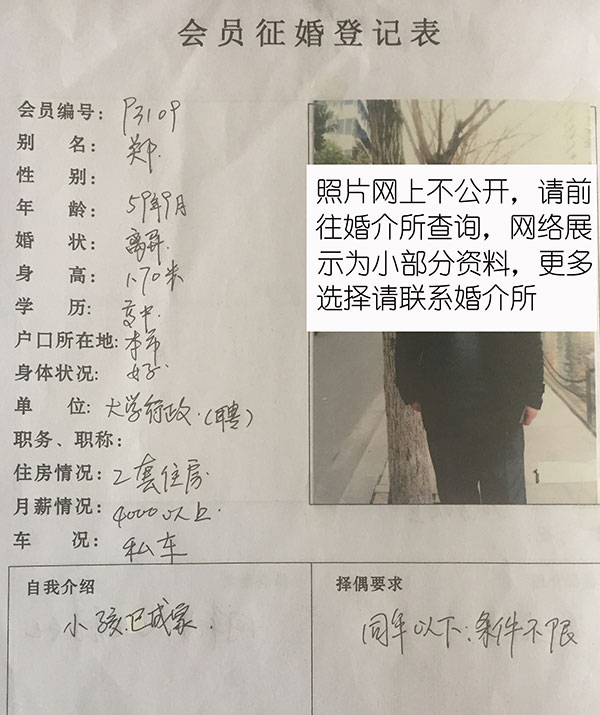 会员征婚登记表
会员编号：P3109
别名：郑
性别：
年龄：59年9月
婚状：离异
身高：1.70米
学历：高中
户口所在地：本市
身体状况：好
单位：大学行政.（聘）
职务、职称：
住房情况：2套住房
月薪情况：4000以上.
车况：私车
照片网上不公开，请前
往婚介所查询，网络展
示为小部分资料，更多
选择请联系婚介所
自我介绍
小孩已成家.
择偶要求
同年以下：条件不限